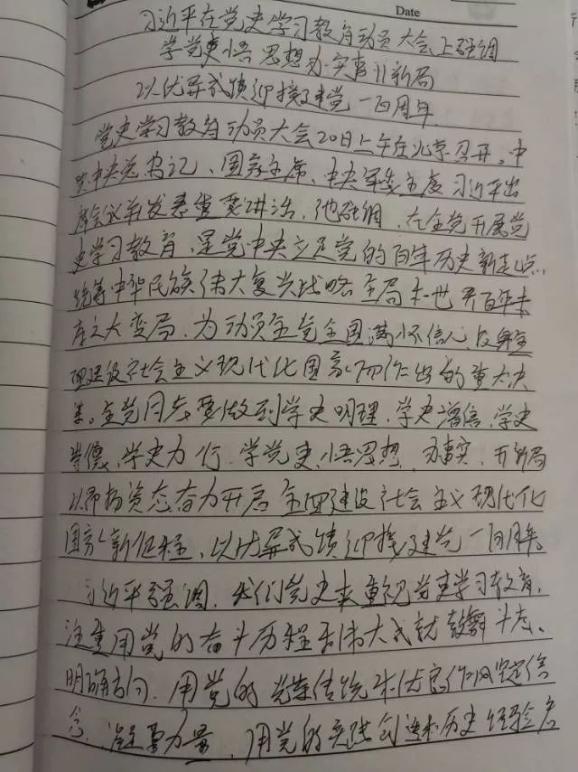 Date
习近平在党史学习教育动员大会上强调
学党史悟思想办实事开新局
以优异成绩迎接建党一百周年
党史学习教育动员大会20日上午在北京召开。中
共中央总书记、国家主席、中央军委主席习近平出
席会议并发表重要讲话。他强调,在全党开展党
史学习教育,是党中央立足党的百年历史新起点、
统筹中华民族伟大复兴战略全局和世界百年未
有之大变局、为动员全党全国满怀信心投身全
面建设社会主义现代化国家而作出的重大决
策。全党同志要做到学史明理、学史增信、学史
崇德、学史力行、学党史、悟思想、办事实、开新局
以昂扬姿态奋力开启全面建设社会主义现代化
国家新征程,以优异成绩迎接建党一百周年。
习近平强调,我们党历来重视党史学习教育,
注重用党的奋斗历程和伟大成就鼓舞斗志、
明确方向,用党的光荣传统和优良作风坚定信
念、凝聚力量,用党的实践创造和历史经验启